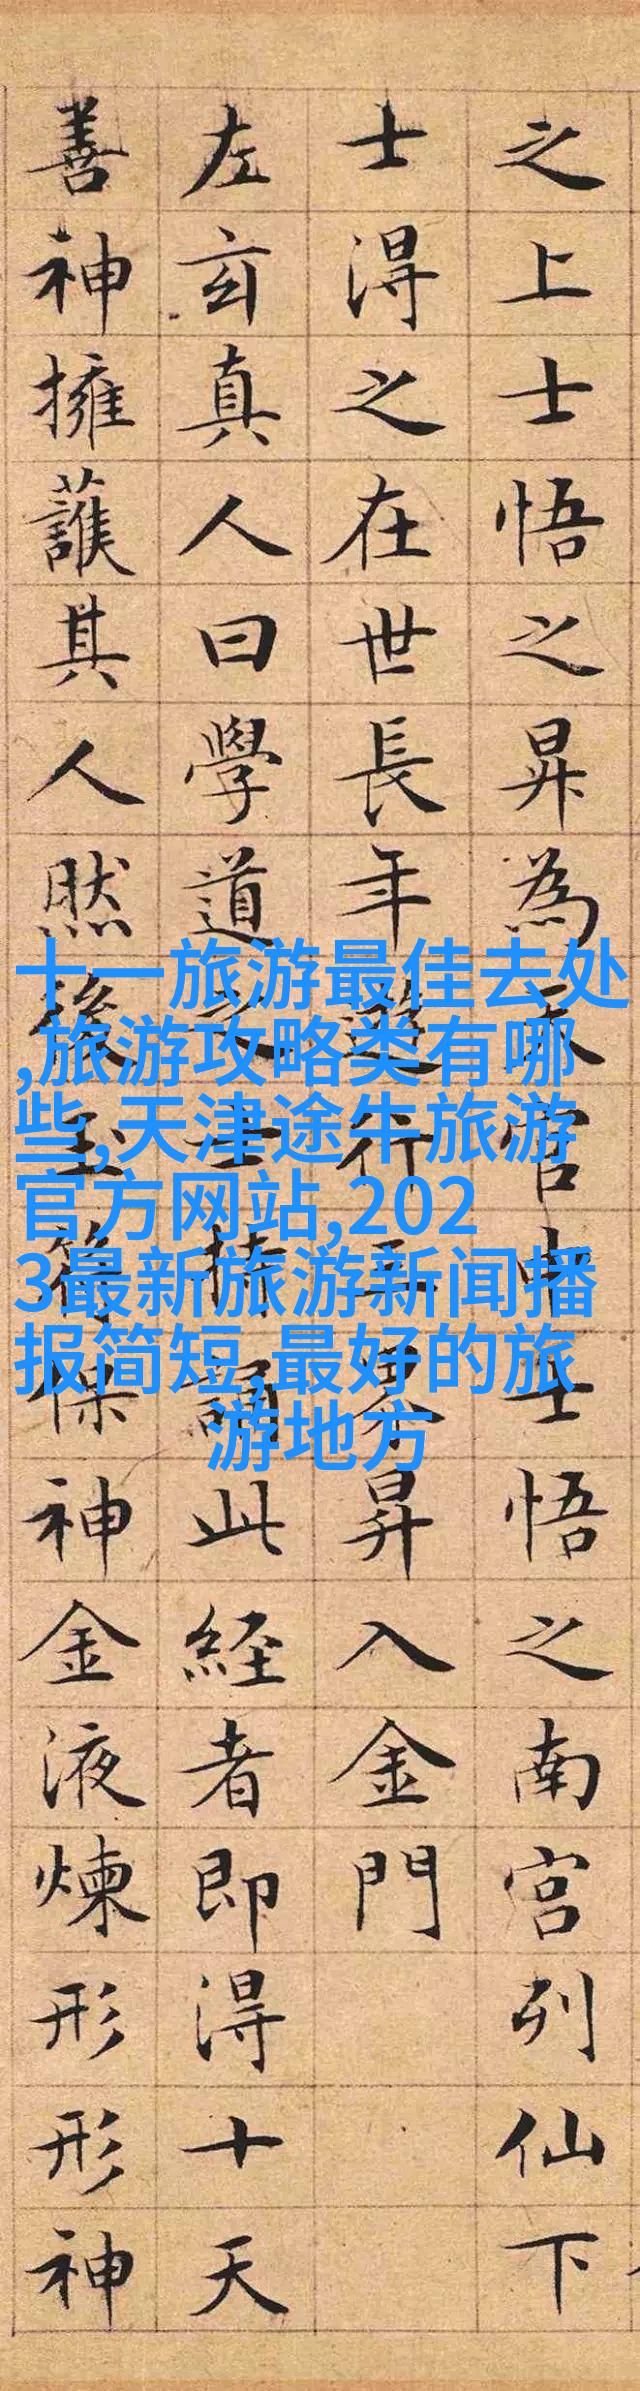 之上士悟之昇為天官中士悟之南宮列仙下
士得之在世長年遊行三界昇入金門
左玄真人曰學道之士持誦此經者即得十天
善神擁護其人然後玉符保神金液煉形形神
十一旅游最佳去处
,旅游攻略类有哪
些,天津途牛旅游
官方网站,202
3最新旅游新闻播
报简短,最好的旅
游地方